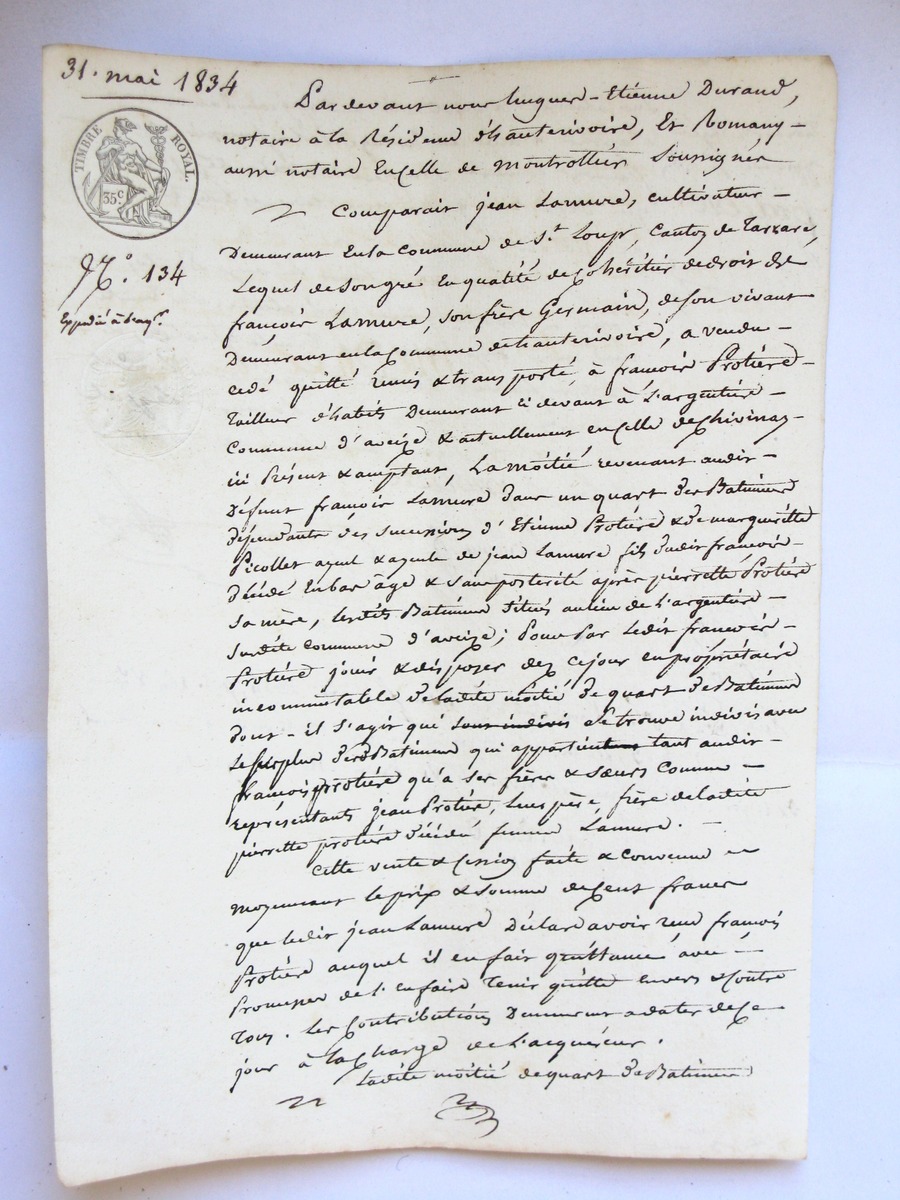 31. mai 1834
TIMBRE ROYAL.
35c
N.° 134
Expédié à l'acqr.
Pardevant nous hugues-Etienne Durand,
notaire à la Résidence d'hauterivoire, Et Romany
aussi notaire En celle de montrottier Soussignés
Comparait jean Lamure, cultivateur
Demeurant En la commune de St. Loup, Canton de Tarrare,
Lequel de son gré En qualité de cohéritier de droit de
françois Lamure, son frère Germain, de son vivant
Demeurant en la Commune d'hauterivoire, a vendu
cedé quitté remis & transporté, à francois Protière
Tailleur d'habits Demeurant ci devant à L'argentière
Commune d'aveize & actuellement en celle de Chivinay
ici Présent & acceptant, La moitié revenant audit
Défunt françois Lamure dans un quart des Batimens
dépendants des Succession d'Etienne Protière & de marguerite
Picollet ayeul & ayeule de jean Lamure fils dudit françois
décédé En bas âge & sans postérité après pierrette Protière
Sa mère, lesdits Batimens situés au lieu de L'argentière
Susdite commune d'aveize; Pour Par Ledit francois
Protière jouir & disposer dez ce jour en propriétaire
incommutable de ladite moitié de quart des Batimens
dont-il s'agit qui sont indivis se trouve indivis avec
Le surplus desd Batimens qui appartient tant audit
francois protière qu'à ses frères & sœurs Comme
représentants jean Protière, Leur père, frère de ladite
pierrette protière décédée femme Lamure.
Cette vente & cession faite & convenue
moyennant le prix & somme de Cent francs
que ledit jean Lamure Déclare avoir reçu francois
Protière auquel il en fait quittance avec
Promesse de l'en faire Tenir quitte envers & Contre
Tous. Les Contributions Demeurent a dater de Ce
jour à la charge de L'acquéreur.
Ladite moitié de quart de Batimens